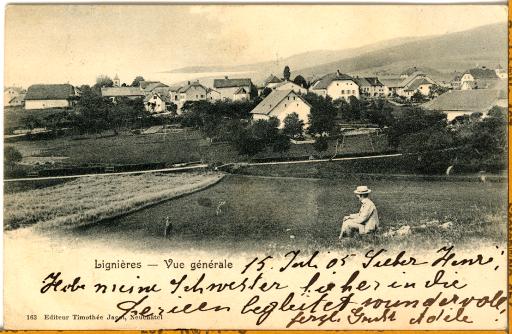 Lignières — Vue générale
15. Jul. 05 Lieber Henri,
Habe meine Schwester hieher in die
Ferien begleitet wundervoll
Gruß Adèle
163 Editeur Timothée Jacot, Neuchâtel